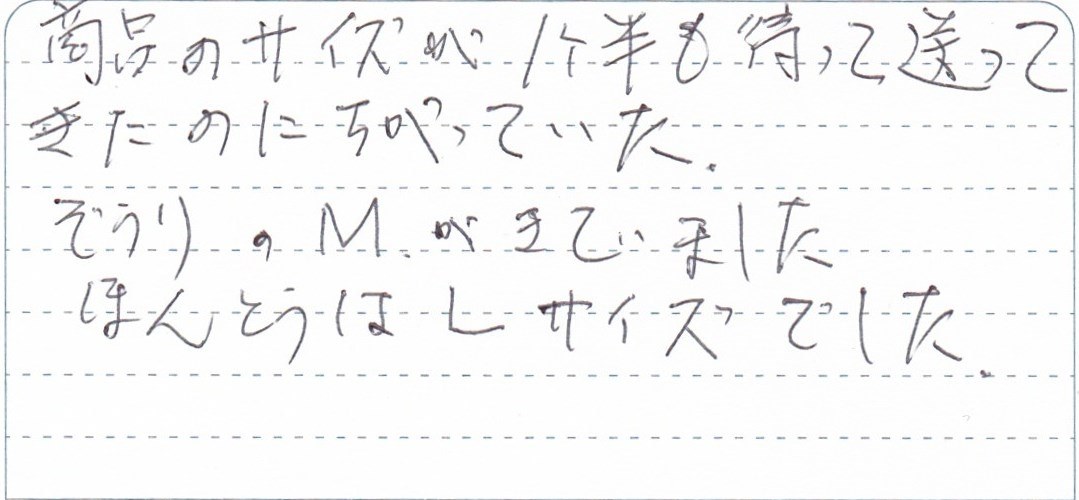 商品のサイズが1ケ半も待って送って
きたのにちがっていた.
ぞうりのM.がきていました
ほんとうはLサイズでした.